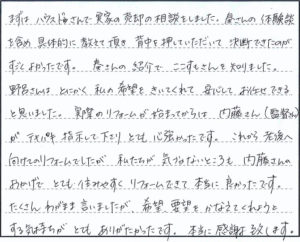 まずは、ハウスドゥさんで実家の売却の相談をしました。奏さんの体験談
を含め、具体的に教えて頂き、背中を押していただいて決断できたのが
すごくよかったです。奏さんの紹介で、こすもさんを知りました。
野呂さんは、とにかく私の希望をきいてくれて、安心してお任せできる
と思いました。実際のリフォームが始まってからは、内藤さん(監督さん)
が テキパキ指示して下さり とても心強かったです。これから老後へ
向けてのリフォームでしたが、私たちが気づかないところも、内藤さんの
おかげで とても住みやすくリフォームできて本当に良かったです。
たくさんわがまま言いましたが、希望、要望をかなえてくれようと
する気持ちが とても ありがたかったです。本当に感謝致します。